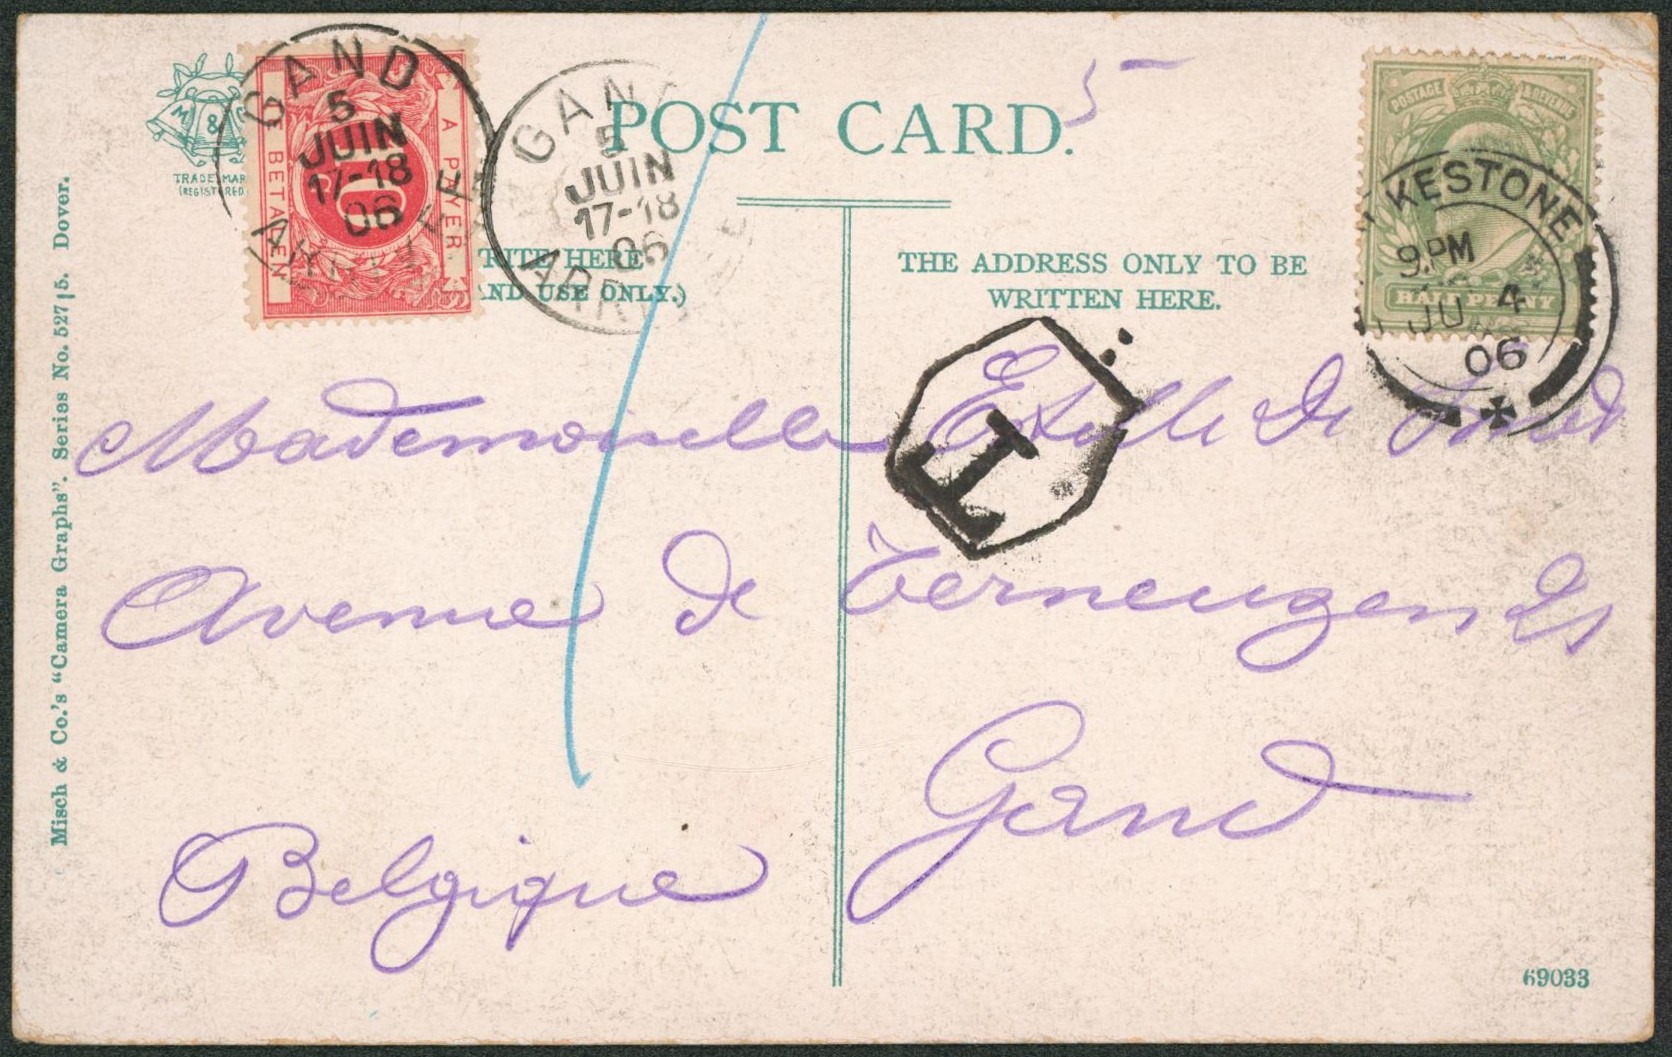 M & Co
TRADE MAR
(REGISTERED
GAND
5
JUIN
17-18
06
A PAYER
TE BETALEN
10
GAN
5
JUIN
17-18
06
POST CARD.
5
POSTAGE & REVENUE
HALFPENNY
KESTONE
9.PM
JU 4
06
RITE HERE
AND USE ONLY.)
THE ADDRESS ONLY TO BE
WRITTEN HERE.
T
Mademoiselle Estelle De
Avenue de Terneuzen 21
Gand
Belgique
Misch & Co.'s "Camera Graphs". Series No. 527/5. Dover.
69033